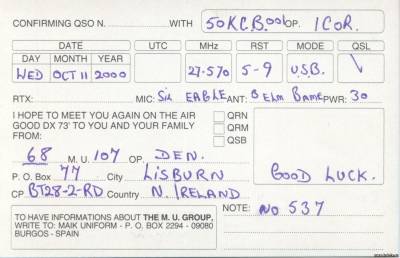 CONFIRMING QSO N. WITH 50KCB001 OP. IGOR.
DATE UTC MHz RST MODE QSL
DAY MONTH YEAR
WED OCT 11 2000 27-570 5-9 U.S.B. \
RTX: MIC: Sil EAGLE ANT: 3 Elm PWR: 30
I HOPE TO MEET YOU AGAIN ON THE AIR
GOOD DX 73' TO YOU AND YOUR FAMILY
FROM:
QRN
QRM
QSB
68 M. U. 107 OP. DEN.
P. O. Box 77 City LISBURN
CP BT28-2-RD Country N. IRELAND
GOOD LUCK.
TO HAVE INFORMATIONS ABOUT THE M. U. GROUP,
WRITE TO: MAIK UNIFORM - P. O. BOX 2294 - 09080
BURGOS - SPAIN
NOTE: No 537